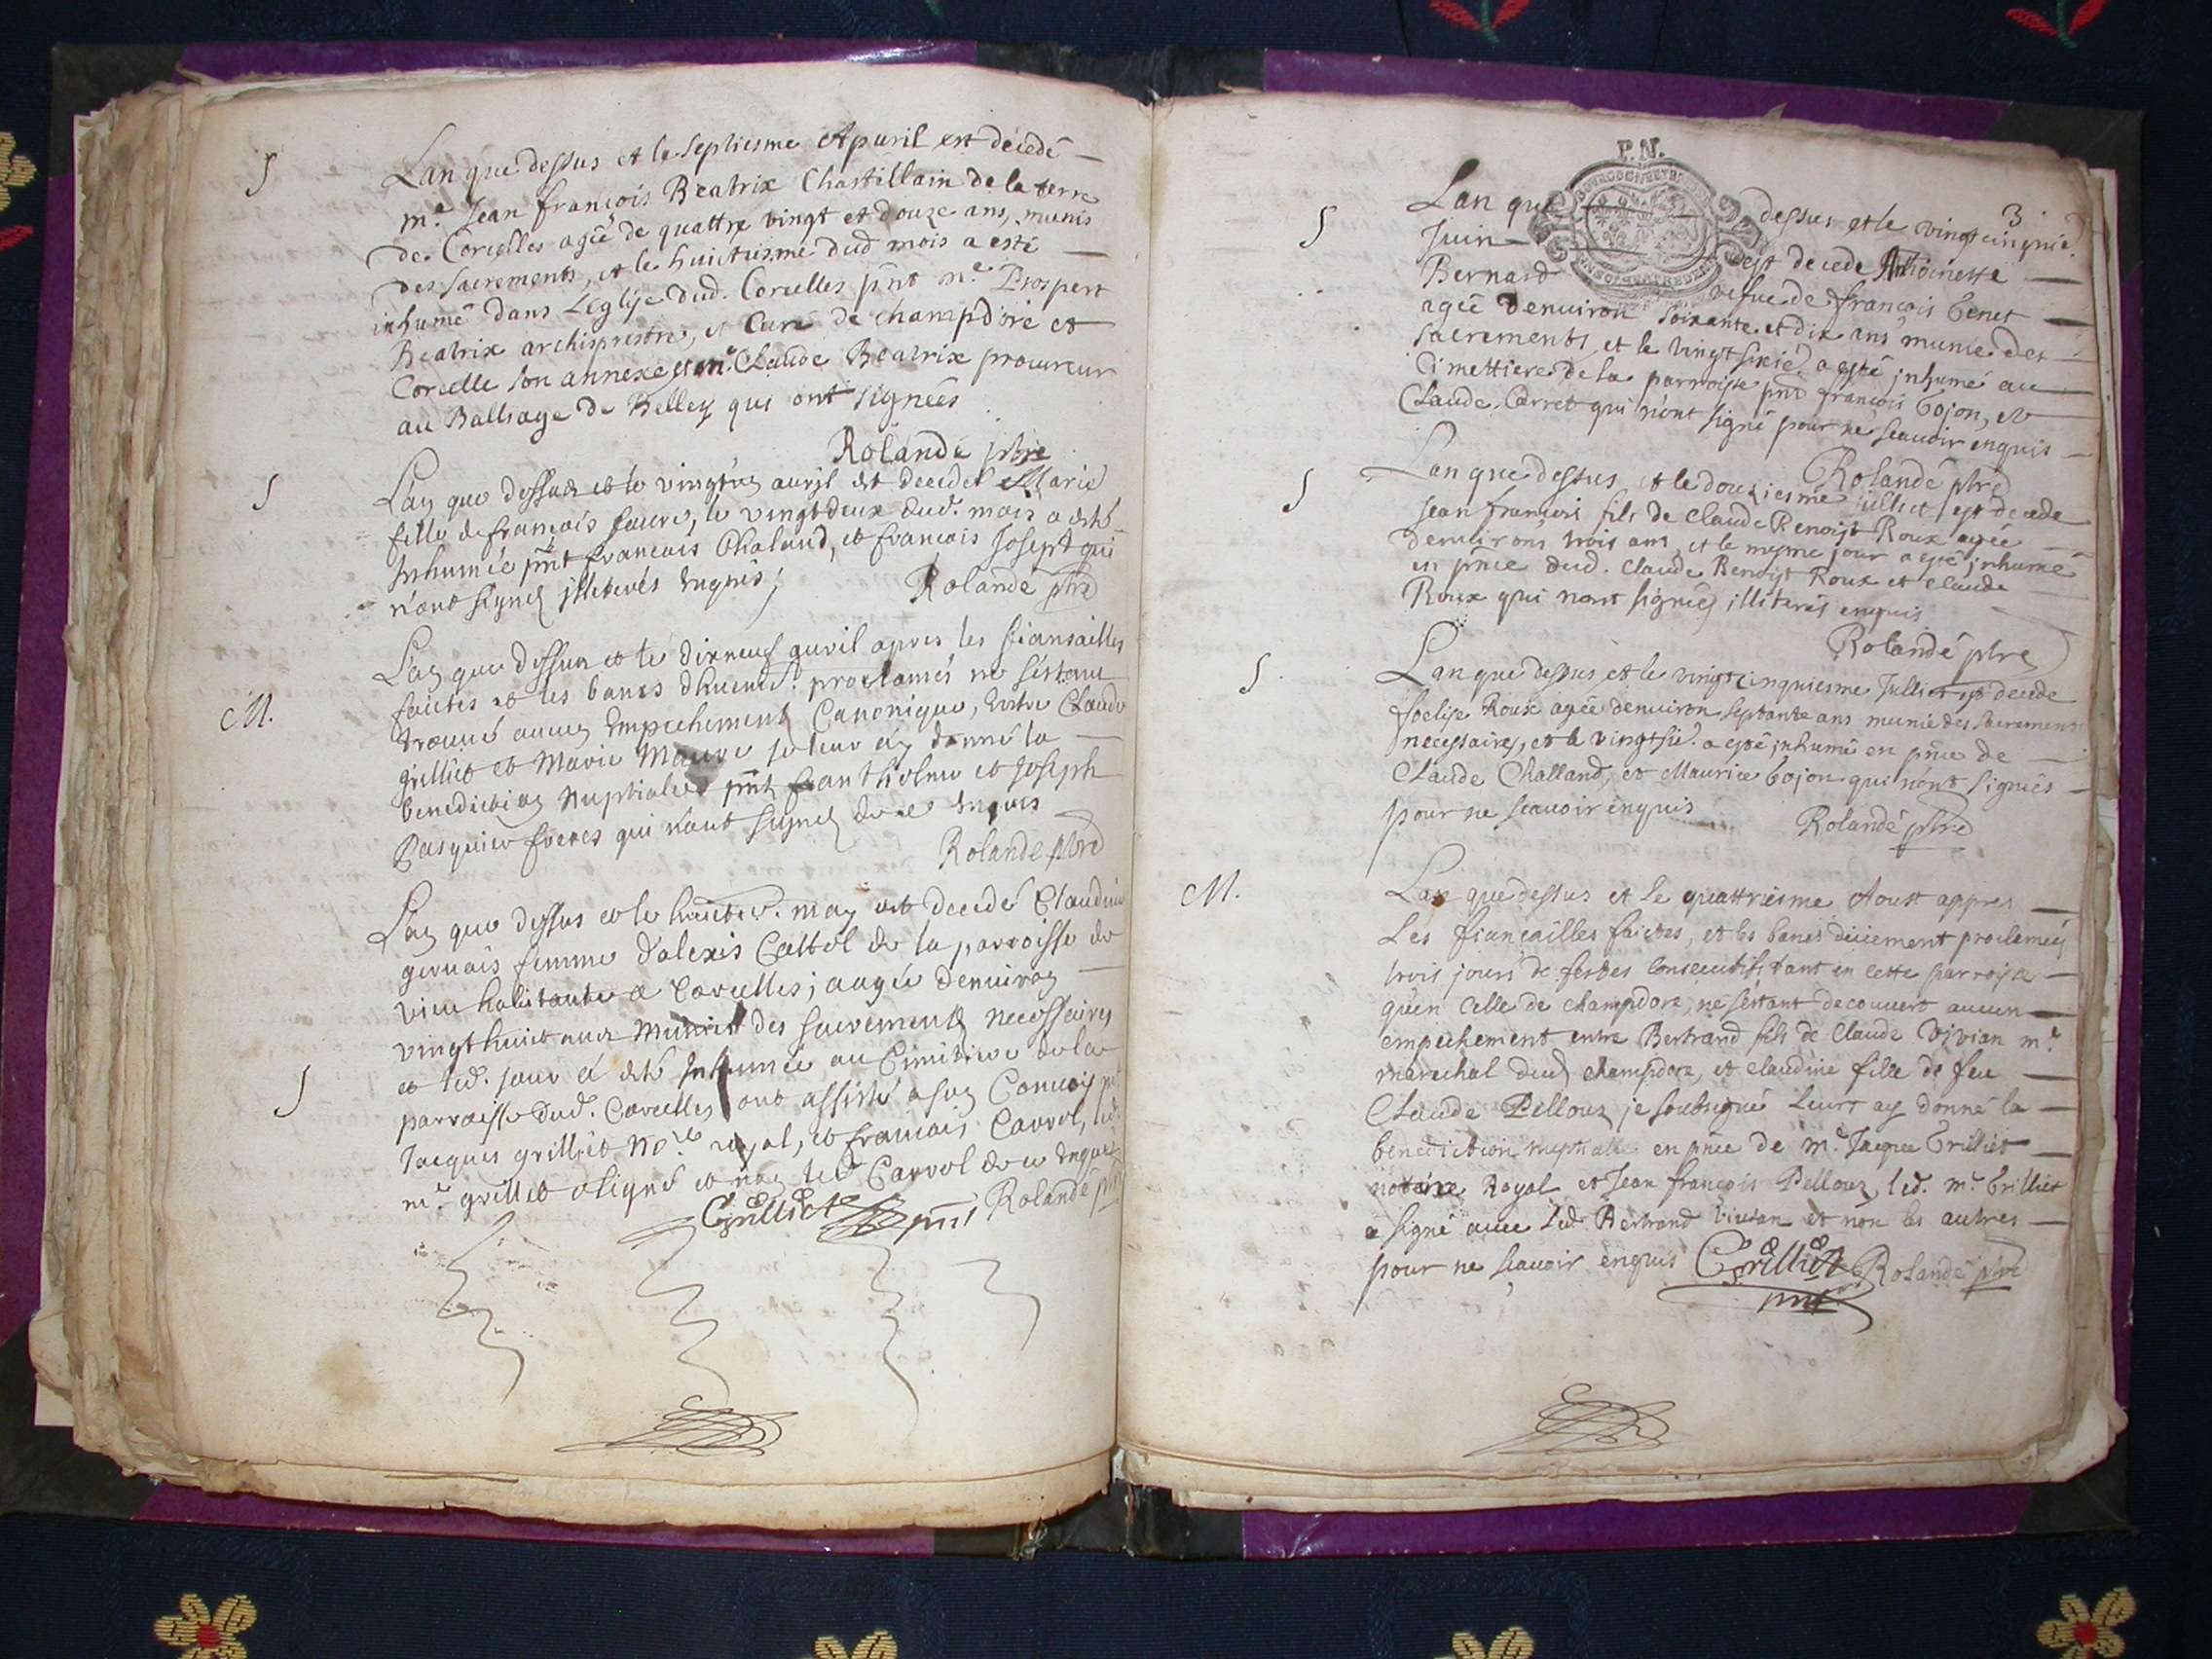 S
Lan que dessus et le septiesme Apuril est décédé
m.e Jean françois Beatrix Chastellain de la terre
de Corcelles agée de quattre vingt et douze ans, munis
des sacrements, et le huictiesme dud mois a esté
inhumé dans L'Eglise dud. Corcelles pñt m.e Prospert
Beatrix archisprestre, et Curé de champdore et
Corcelle son annexe et m.e Claude Beatrix procureur
au Balliage de Belley qui ont signées
Rolande ptre
S
Lan que dessus et le vingt aurjl est decedé Marie
fille de francois faure, le vingt deux dud. mois a esté
Inhumée pñt francois Chaland, et francois Josept qui
n'ont signé jlleterés Enquis
Rolande ptre
M.
Lan que dessus et le dixneuf auril apres les fiansailles
faictes et les bancs dhuement proclamés ne s'estant
trouué aucun Empechement Canonique, Entre Claude
grilliet et Marie Maure je leur ay donné la
benediction Nuptiale pñt et Joseph
Pasquier freres qui n'ont signé de ce Enquis
Rolande ptre
S
Lan que dessus et le huictie. may est decedé Claudine
geruais femme d'alexis Cattel de la parroisse de
vieu habitante a Corcelles; augée denuiron
vingt huict ans Munie des sacrements necessaires
et led. jour a esté Inhumée au Cimitiere de la
parroisse dud. Corcelles ont assisté a son Conuoy m.e
Jacques grilliet No.re royal, et francois Carrel, led.
m.e grilliet a signé et non led Carrel de ce Enquis
Grilliet pñt Rolande ptre
P.N.
3
S
Lan que dessus et le vingt cinquie.
Juin est decede Anthoinette
Bernard vefue de françois Genet
agée denuiron soixante et dix ans munie des
sacrements et le vingt sixié. a esté jnhumé au
Cimettiere de la parroisse pñt françois Gojon, et
Claude Carret qui n'ont signé pour ne scauoir enquis
Rolandé ptre
S
Lan que dessus et le douziesme Julliet est decede
Jean francois fils de Claude Benoist Roux agée
denuirons trois ans et le mesme jour a esté jnhumé
en pñce dud. Claude Benoist Roux et Claude
Roux qui n'ont signéz illiterés enquis
Rolandé ptre
S
Lan que dessus et le vingtcinquiesme Julliet est decede
Roux agée denuiron septante ans munie des sacrements
necessaires, et le vingt sié. a esté jnhumé en pñce de
Claude Challand, et Maurice Gojon qui n'ont signés
pour ne scauoir enquis
Rolandé ptre
M.
Lan que dessus et le quattriesme Aoust appres
Les fiançailles faictes, et les bancs düement proclaméz
trois jours de festes consecutifs tant en cette parroisse
qu'en celle de champdore, ne s'estant decouuert aucun
empechement entre Bertrand fils de Claude Vivian m.e
marechal dud champdore, et Claudine fille de feu
Claude Pellouz je soubsigné Leurs ay donné la
benediction nuptialle en pñce de m.e Jacque Grilliet
notaire Royal et Jean françois Pellouz, led. m.e Grilliet
a signé auec led Bertrand Viuian et non les autres
pour ne scauoir enquis Grilliet Rolandé ptre
pñt